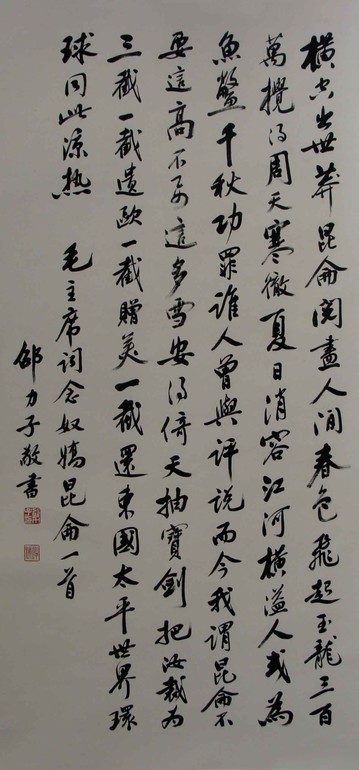 橫空出世莽昆侖閱盡人间春色飛起玉龍三百
萬攪得周天寒徹夏日消容江河橫溢人或為
魚鱉千秋功罪谁人曾與评说而今我谓昆侖不
要這高不要這多雪安得倚天抽寶劍把汝裁为
三截一截遺歐一截贈美一截還東國太平世界環
球同此涼热 毛主席词念奴嬌昆侖一首
邵力子敬書